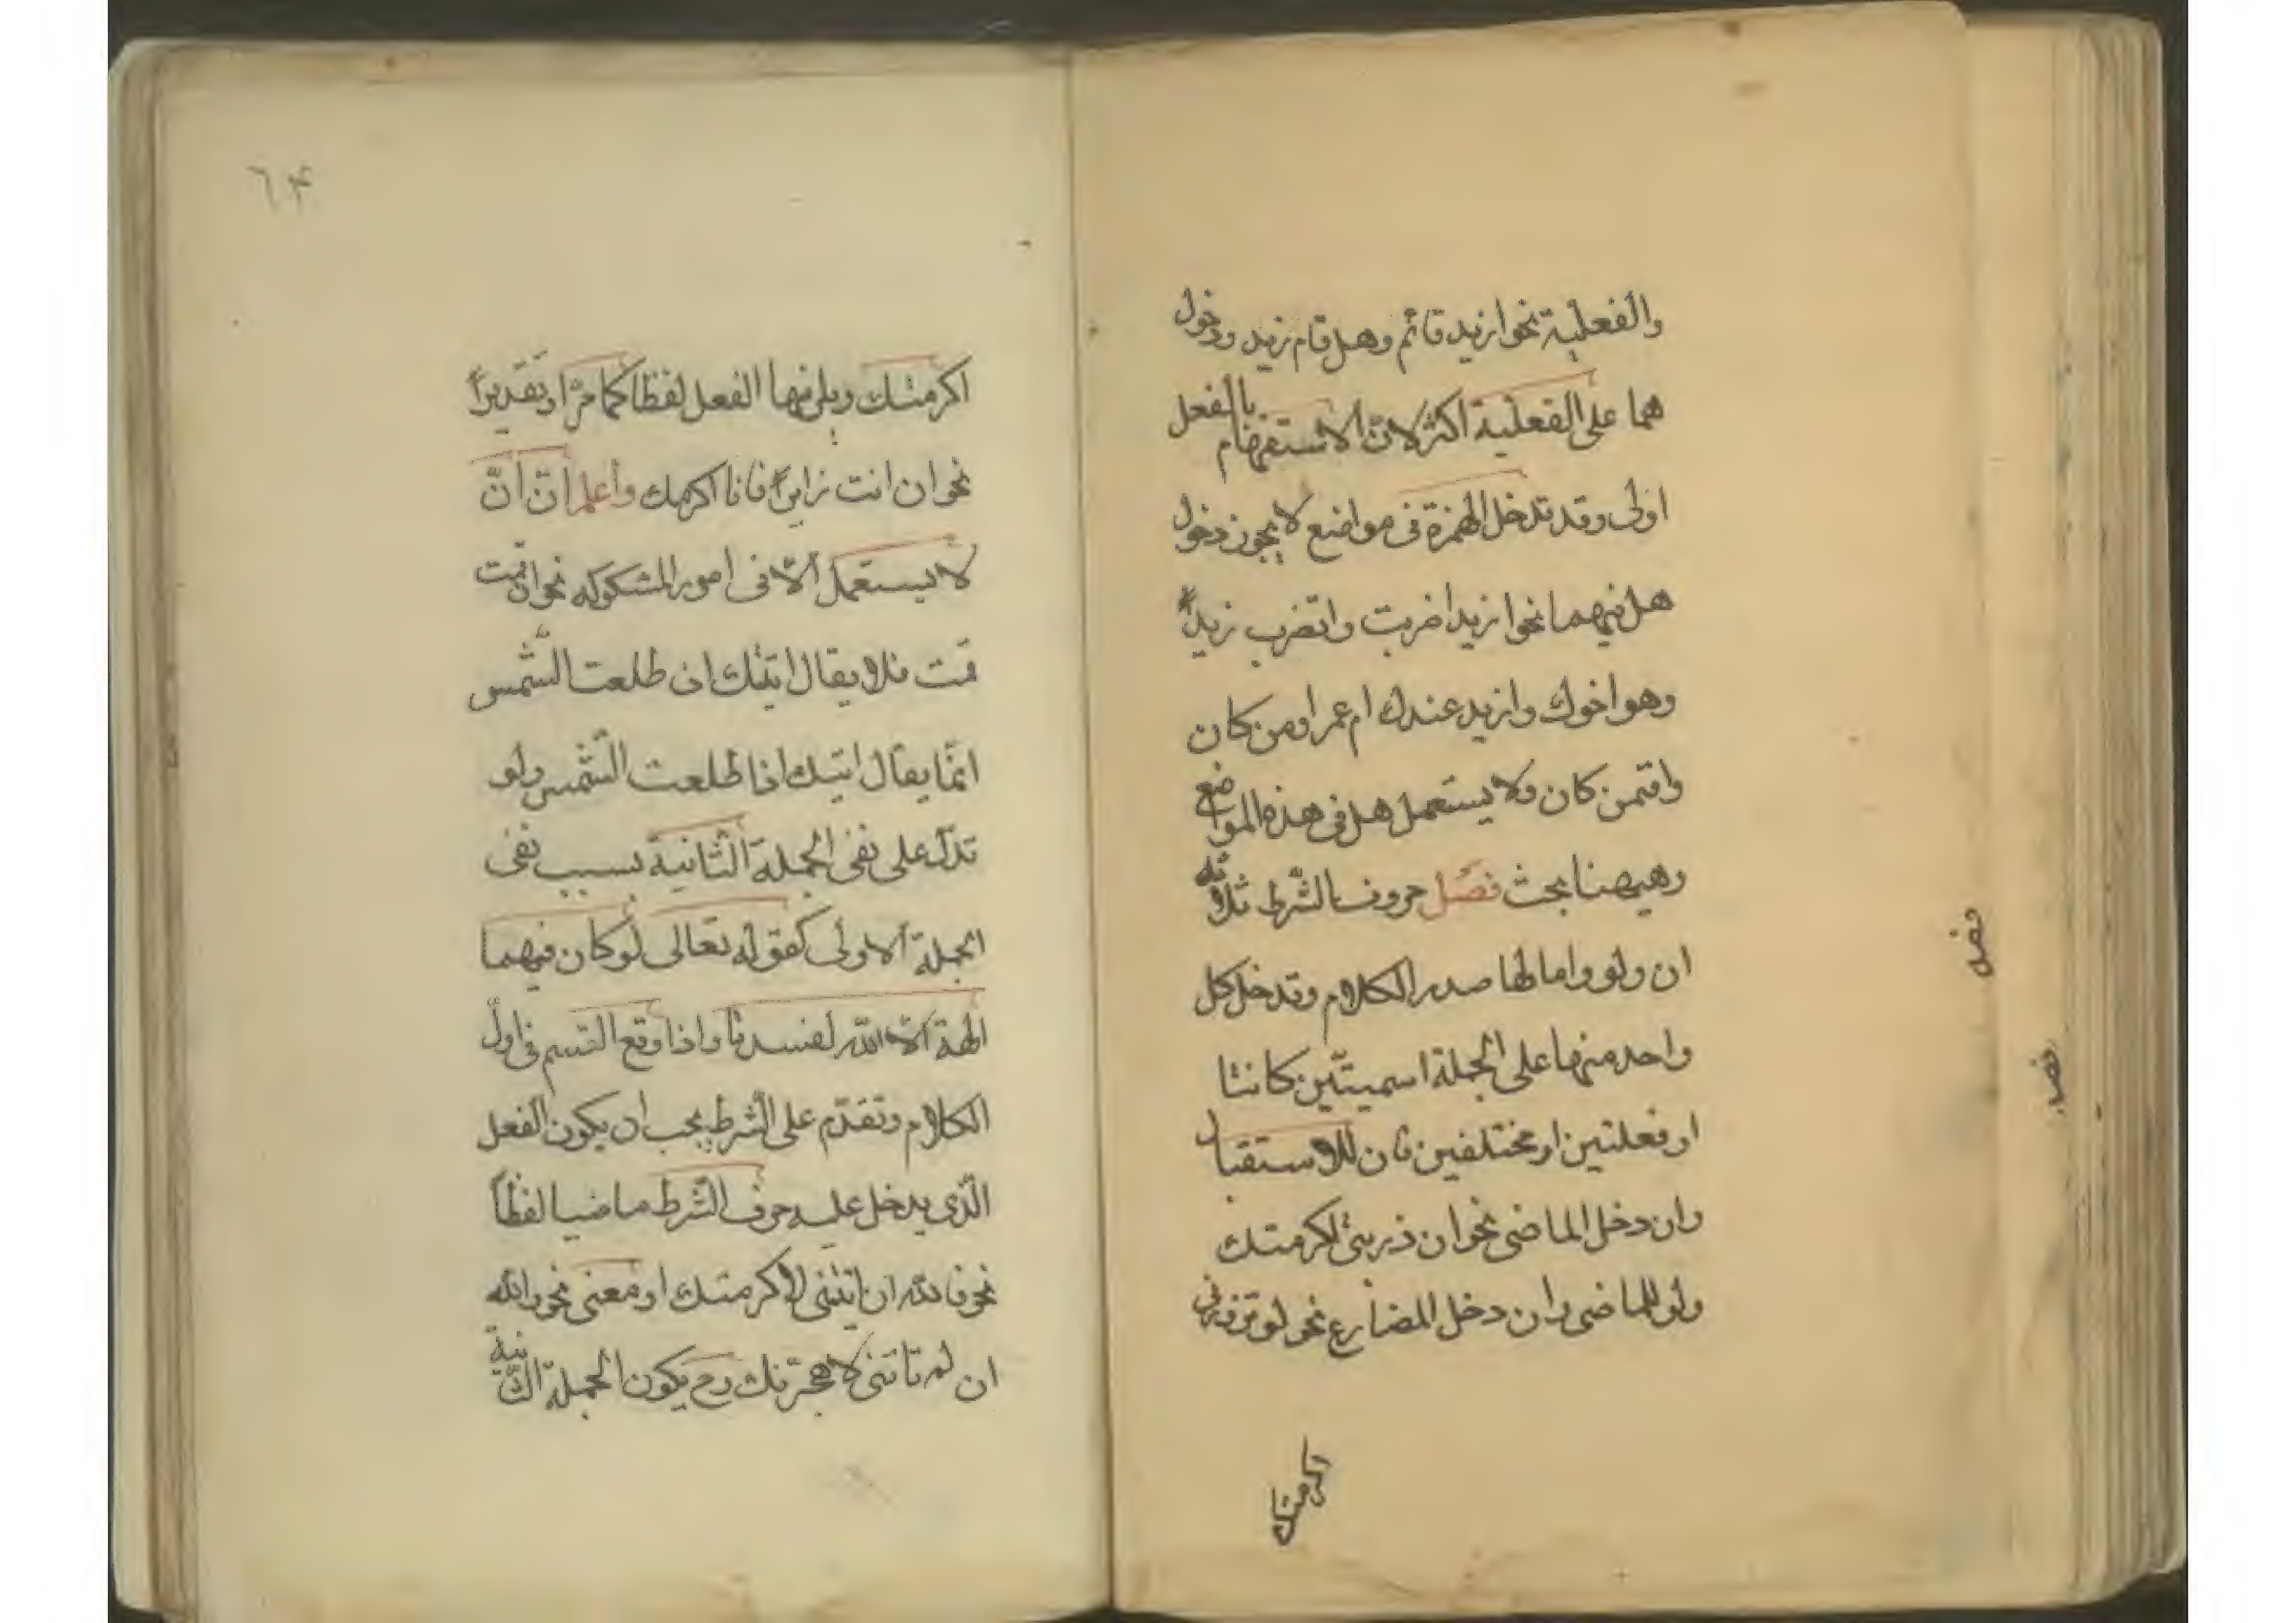 والفعلية نحو ازيد قائم وهل قام زيد ودخول
هما على الفعلية اكثر لانّ الاستفهام بالفعل
اولى وقد تدخل الهمزة فى مواضع لا يجوز دخول
هل فيهما نحو ازيدا ضربت واتضرب زيداً
وهو اخوك وازيد عندك ام عمرا ومن كان
وافمن كان ولا يستعمل هل فى هذه المواضع
وهيهنا بحث فصل حروف الشّرط ثلاثه
ان ولو واما لها صدر الكلام وتدخل كل
واحد منها على الجملة اسميتّين كانتا
او فعلتين او مختلفين فان للاستقبال
وان دخل الماضى نحو ان ذرينى اكرمتك
ولو للماضى وان دخل المضارع نحو لو تزورنى
اكرمتك
فصل
فصل
٦۴
اكرمتك ويلزمها الفعل لفظا كما مرّ او تقديراً
نحو ان انت زايراً فانا اكرمك واعلم انّ انّ
لا يستعمل الّا فى امور المشكوكه نحو ان قمت
قمت فلا يقال اتيك ان طلعت الشّمس
انّما يقال اتيك اذا طلعت الشّمس ولو
تدلّ على نفى الجملة الثّانية بسبب نفى
الجملة الاولى كقوله تعالى لو كان فيهما
الهة الّا اللّه لفسدتا واذا وقع القسم فى اوّل
الكلام وتقدّم على الشّرط يجب ان يكون الفعل
الّذى يدخل عليه حرف الشّرط ماضيا لفظاً
نحو فاللّه ان اتيتنى لاكرمتك او معنى نحو واللّه
ان لم تاتنى لاهجرتك وح يكون الجملة الثّانية